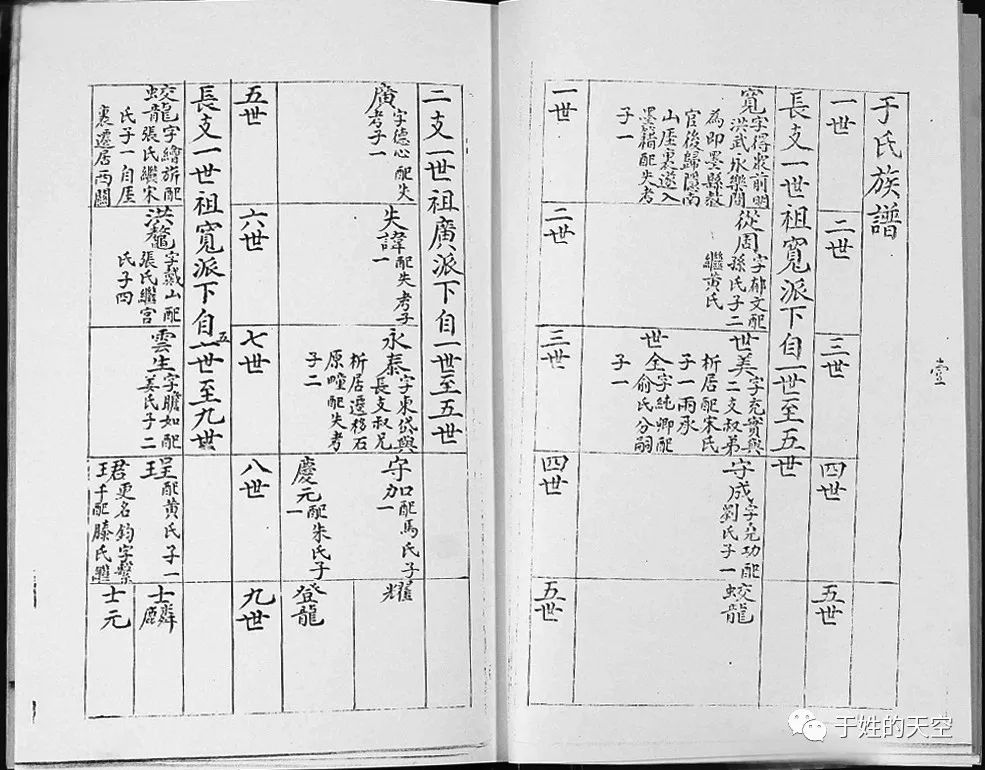 壹
于氏族譜
一世
二世
三世
四世
五世
長支一世祖寬派下自一世至五世
寬字得衆前明
洪武永樂間
為即墨縣教
官後歸隱南
山厓裏遂入
墨籍配失考
子一
從周字郁文配
孫氏子二
繼黄氏
世美字充實與
二支叔弟
析居配宋氏
子一兩承
世全字純卿配
俞氏分嗣
子一
守成字允功配
劉氏子一
蛟龍
一世
二世
三世
四世
五世
二支一世祖廣派下自一世至五世
廣字德心配失
考子一
失諱配失考子
一
永泰字東岱與
長支叔兄
析居遷移石
原疃配失考
子二
守加配馬氏子
一
慶元配朱氏子
一
耀
登龍
五世
六世
七世
八世
九世
長支一世祖寬派下自五世至九世
蛟龍字繪旂配
張氏繼宋
氏子一自厓
裏遷居西關
洪鰲字戴山配
張氏繼宫
氏子四
雲生字瞻如配
姜氏子二
珵配黄氏子一
珺更名鈞字
千配滕氏
士麟
士元
于姓的天空